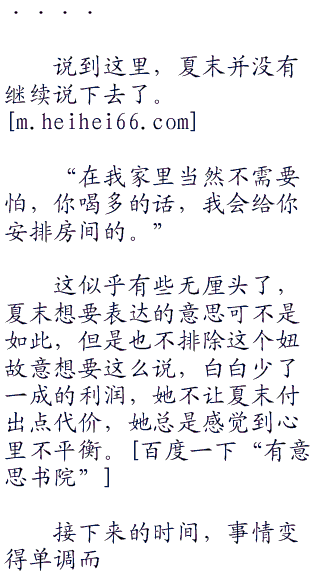 ．．．．
说到这里，夏末并没有
继续说下去了。
[m.heihei66.com]
“在我家里当然不需要
怕，你喝多的话，我会给你
安排房间的。”
这似乎有些无厘头了，
夏末想要表达的意思可不是
如此，但是也不排除这个妞
故意想要这么说，白白少了
一成的利润，她不让夏末付
出点代价，她总是感觉到心
里不平衡。[百度一下“有意
思书院”]
接下来的时间，事情变
得单调而